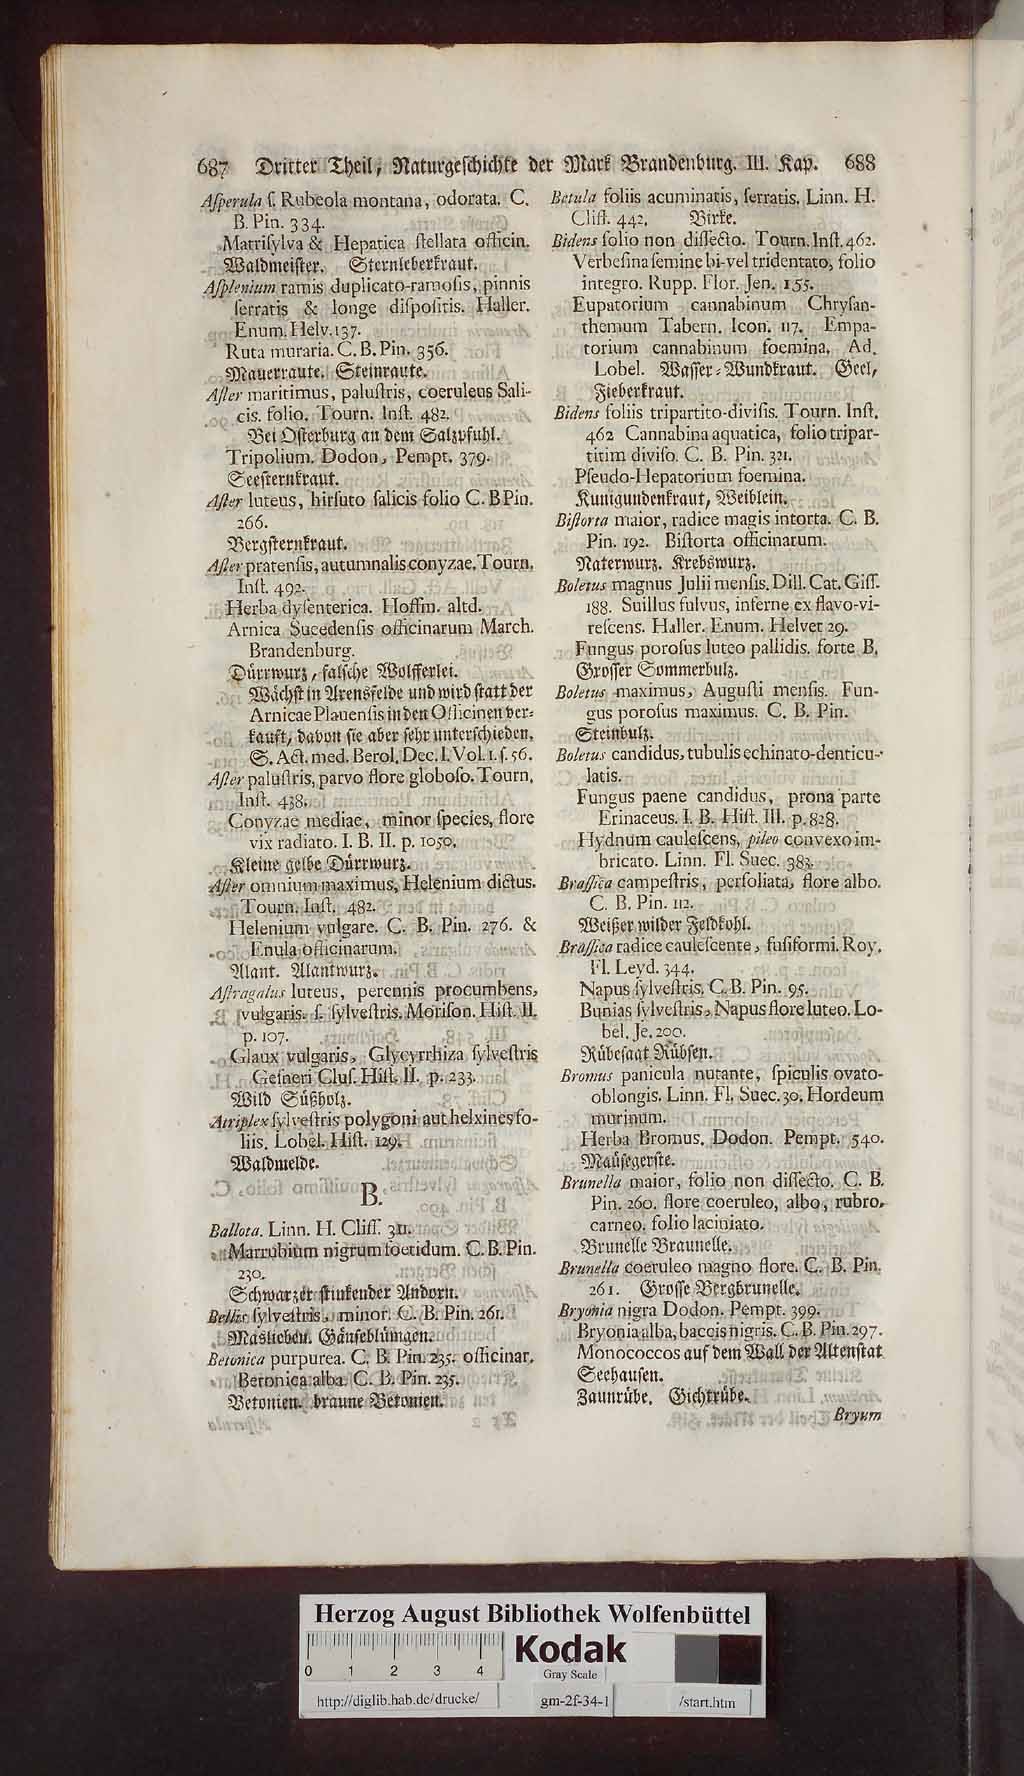 687 Dritter Theil, Naturgeschichte der Mark Brandenburg. III. Kap. 688
Aſperula ſ. Rubeola montana, odorata. C.
B. Pin. 334.
Matriſylva & Hepatica ſtellata officin.
Waldmeiſter. Sternleberkraut.
Aſplenium ramis duplicato-ramoſis, pinnis
ſerratis & longe diſpoſitis. Haller.
Enum. Helv. 137.
Ruta muraria. C. B. Pin. 356.
Mauerraute. Steinraute.
Aſter maritimus, paluſtris, coeruleus Sali-
cis. folio. Tourn. Inſt. 482.
Bei Oſterburg an dem Salzpfuhl.
Tripolium. Dodon, Pempt. 379.
Seeſternkraut.
Aſter luteus, hirſuto ſalicis folio C. B Pin.
266.
Bergſternkraut.
Aſter pratenſis, autumnalis conyzae. Tourn.
Inſt. 492.
Herba dyſenterica. Hoffm. altd.
Arnica Suedenſis officinarum March.
Brandenburg.
Dürrwurz, falſche Wolfferlei.
Wächſt in Arensfelde und wird ſtatt der
Arnicae Plauenſis in den Officinen ver-
kauft, davon ſie aber ſehr unterſchieden.
S. Act. med. Berol. Dec. I. Vol. I. ſ. 56.
Aſter paluſtris, parvo flore globoſo. Tourn.
Inſt. 438.
Conyzae mediae, minor ſpecies, flore
vix radiato. I. B. II. p. 1050.
Kleine gelbe Dürrwurz.
Aſter omnium maximus, Helenium dictus.
Tourn. Inſt. 482.
Helenium vulgare. C. B. Pin. 276. &
Enula officinarum.
Alant. Alantwurz.
Aſtragalus luteus, perennis procumbens,
vulgaris. ſ. ſylveſtris. Moriſon. Hiſt. II.
p. 107.
Glaux vulgaris, Glycyrrhiza ſylveſtris
Geſneri Cluſ. Hiſt. II. p. 233.
Wild Süßholz.
Atriplex ſylveſtris polygoni aut helxines fo-
liis. Lobel. Hiſt. 129.
Waldmelde.
B.
Ballota. Linn. H. Cliff. 311.
Marrubium nigrum foetidum. C. B. Pin.
230.
Schwarzer ſtinkender Andorn.
Bellis ſylveſtris, minor. C. B. Pin. 261.
Maslieben. Gänſeblümgen.
Betonica purpurea. C. B. Pin. 235. officinar.
Betonica alba. C. B. Pin. 235.
Betonien. braune Betonien.
Betula foliis acuminatis, ſerratis. Linn. H.
Cliff. 442. Birke.
Bidens folio non diſſecto. Tourn. Inſt. 462.
Verbeſina ſemine bi-vel tridentato, folio
integro. Rupp. Flor. Jen. 155.
Eupatorium cannabinum Chryſan-
themum Tabern. Icon. 117. Empa-
torium cannabinum foemina. Ad.
Lobel. Waſſer-Wundkraut. Geel,
Fieberkraut.
Bidens foliis tripartito-diviſis. Tourn. Inſt.
462 Cannabina aquatica, folio tripar-
titim diviſo. C. B. Pin. 321.
Pſeudo-Hepatorium foemina.
Kunigundenkraut, Weiblein.
Biſtorta maior, radice magis intorta. C. B.
Pin. 192. Biſtorta officinarum.
Naterwurz. Krebswurz.
Boletus magnus Julii menſis. Dill. Cat. Giſſ.
188. Suillus fulvus, inferne ex flavo-vi-
reſcens. Haller. Enum. Helvet 29.
Fungus poroſus luteo pallidis. forte B.
Groſſer Sommerbulz.
Boletus maximus, Auguſti menſis. Fun-
gus poroſus maximus. C. B. Pin.
Steinbulz.
Boletus candidus, tubulis echinato-denticu-
latis.
Fungus paene candidus, prona parte
Erinaceus. I. B. Hiſt. III. p. 828.
Hydnum cauleſcens, pileo convexo im-
bricato. Linn. Fl. Suec. 383.
Braſſica campeſtris, perfoliata, flore albo.
C. B. Pin. 112.
Weißer wilder Feldkohl.
Braſſica radice cauleſcente, fuſiformi. Roy.
Fl. Leyd. 344.
Napus ſylveſtris. C. B. Pin. 95.
Bunias ſylveſtris, Napus flore luteo. Lo-
bel. Je. 200.
Rübeſaat Rübſen.
Bromus panicula nutante, ſpiculis ovato-
oblongis. Linn. Fl. Suec. 30. Hordeum
murinum.
Herba Bromus. Dodon. Pempt. 540.
Mauſegerſte.
Brunella maior, folio non diſſecto. C. B.
Pin. 260. flore coeruleo, albo, rubro.
carneo. folio laciniato.
Brunelle Braunelle.
Brunella coeruleo magno flore. C. B. Pin.
261. Groſſe Bergbrunelle.
Bryonia nigra Dodon. Pempt. 399.
Bryonia alba, baccis nigris. C. B. Pin. 297.
Monococcos auf dem Wall der Altenſtat
Seehauſen.
Zaunrübe. Gichtrübe.
Bryum
Herzog August Bibliothek Wolfenbüttel
Kodak
Gray Scale
0 1 2 3 4
http://diglib.hab.de/drucke/ gm-2f-34-1 /start.htm